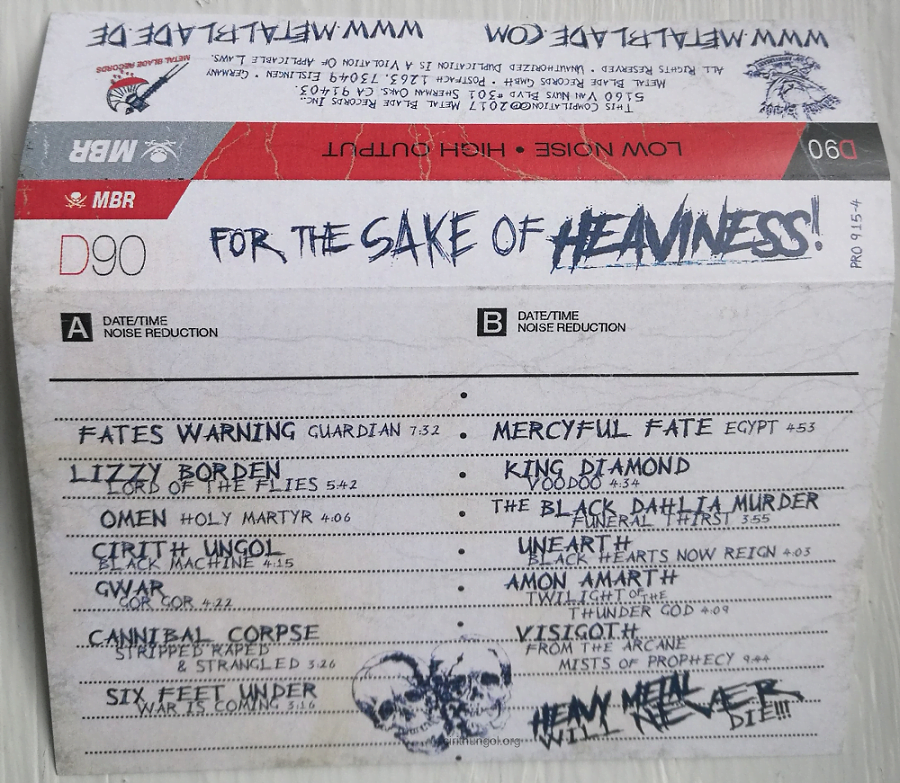 WWW.METALBLADE.DE
WWW.METALBLADE.COM
METAL BLADE RECORDS
THIS COMPILATION ©℗ 2017 METAL BLADE RECORDS INC.
5160 VAN NUYS BLVD #301 SHERMAN OAKS, CA 91403.
METAL BLADE RECORDS GMBH • POSTFACH 1265. 73049 EISLINGEN • GERMANY
ALL RIGHTS RESERVED • UNAUTHORIZED DUPLICATION IS A VIOLATION OF APPLICABLE LAWS.
MBR
LOW NOISE • HIGH OUTPUT
D90
MBR
D90
FOR THE SAKE OF HEAVINESS!
PRO 915-4
A DATE/TIME
NOISE REDUCTION
B DATE/TIME
NOISE REDUCTION
FATES WARNING GUARDIAN 7:32
LIZZY BORDEN
LORD OF THE FLIES 5:42
OMEN HOLY MARTYR 4:06
CIRITH UNGOL
BLACK MACHINE 4:15
GWAR
GOR GOR 4:22
CANNIBAL CORPSE
STRIPPED RAPED
& STRANGLED 3:26
SIX FEET UNDER
WAR IS COMING 3:16
MERCYFUL FATE EGYPT 4:53
KING DIAMOND
VOODOO 4:34
THE BLACK DAHLIA MURDER
FUNERAL THIRST 3:55
UNEARTH
BLACK HEARTS NOW REIGN 4:03
AMON AMARTH
TWILIGHT OF THE
THUNDER GOD 4:09
VISIGOTH
FROM THE ARCANE
MISTS OF PROPHECY 9:44
HEAVY METAL
WILL NEVER
DIE!!!